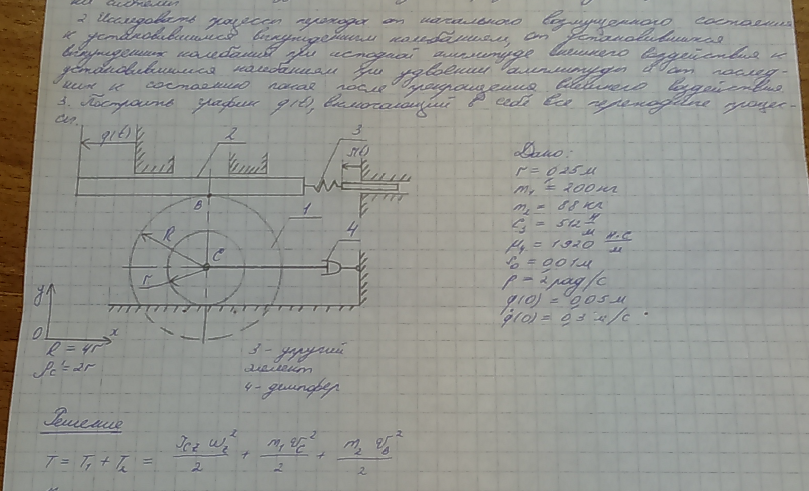 2. Исследовать процессы перехода от начального возмущенного состояния
к установившимся вынужденным колебаниям, от установившихся
вынужденных колебаний при исходной амплитуде внешнего воздействия к
установившимся колебаниям при удвоении амплитуды и от послед-
них к состоянию покоя после прекращения внешнего воздействия
3. Построить график q(t), включающий в себя все переходные процес-
сы.
q(t)
2
3
S(t)
B
R
1
4
C
r
y
O
x
R = 4r
ρc = 2r
3 - упругий
элемент
4 - демпфер
Дано:
r = 0,25 м
m1 = 200 кг
m2 = 88 кг
c3 = 512 н/м
μ4 = 1920 н·с/м
S0 = 0,01 м
p = 2 рад/с
q(0) = 0,05 м
q̇(0) = 0,3 м/с
Решение
T = T1 + T2 = Jcz ωz²/2 + m1 vc²/2 + m2 vB²/2